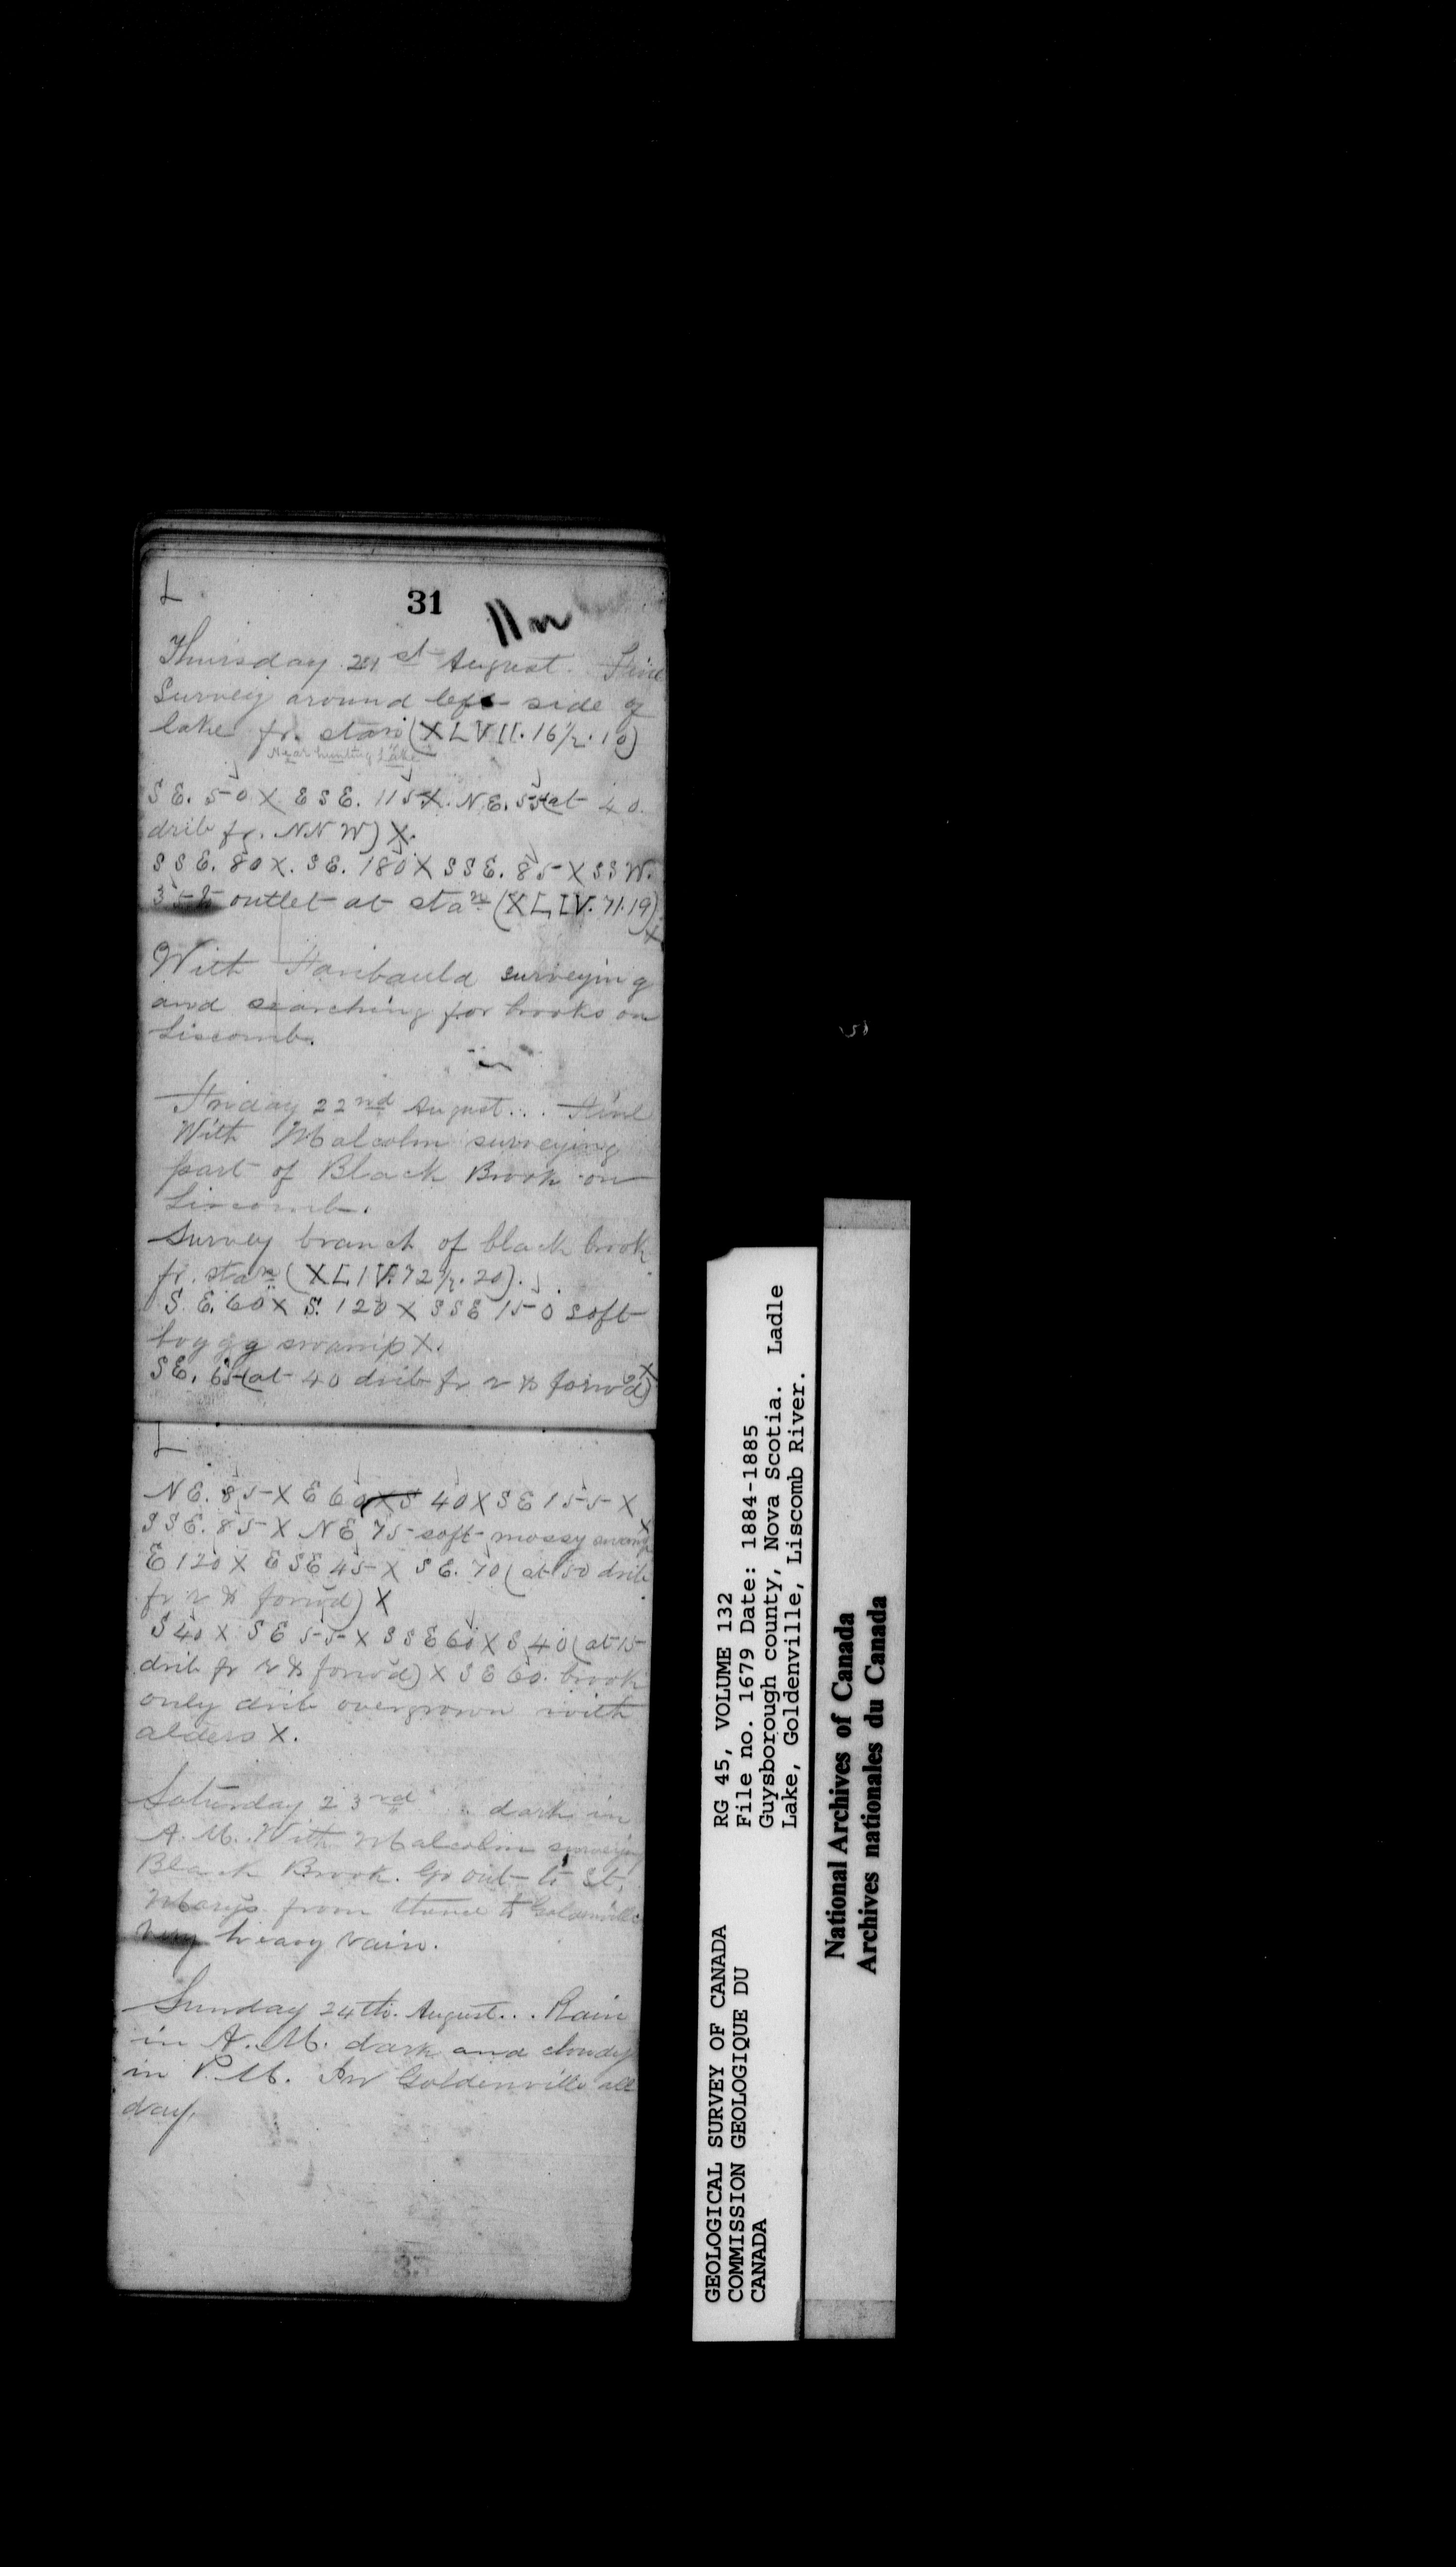 L
31
Thursday 21st August. Fine
Survey around left side of
lake fr. stan (XLVII. 16 1/2. 10)
Near hunting Lake
S E. 50 X E S E. 115 X. N E. 55 (at 40
drib fr. NNW) X.
S S E. 80 X. S E. 180 X S S E. 85 X S S W.
35 to outlet at stan (XLIV. 71. 19)
X
With Faribauld surveying
and searching for brooks on
Liscomb.
Friday 22nd August... Fine
With Malcolm surveying
part of Black Brook on
Liscomb.
Survey branch of black brook
fr. stan (XLIV. 72 1/2. 20).
S. E. 60 X S. 120 X S S E 150 soft
boggy swamp X.
S E. 65 (at 40 drib fr r & forw'd) X
L
N E. 85 X E 60 X S 40 X S E 155 X
S S E. 85 X N E 75 soft mossy swamp X
E 120 X E S E 45 X S E. 70 (at 50 drib
fr r & forw'd) X
S 40 X S E 55 X S S E 60 X S 40 (at 15
drib fr r & forw'd) X S E 60. brook
only drib overgrown with
alders X.
Saturday 23rd " .. dark in
A. M. With Malcolm surveying
Black Brook. Go out to St.
Marys from thence to Goldenville
Very heavy rain.
Sunday 24th. August... Rain
in A. M. dark and cloudy
in P. M. In Goldenville all
day.
GEOLOGICAL SURVEY OF CANADA
COMMISSION GEOLOGIQUE DU
CANADA
RG 45, VOLUME 132
File no. 1679 Date: 1884-1885
Guysborough county, Nova Scotia. Ladle
Lake, Goldenville, Liscomb River.
National Archives of Canada
Archives nationales du Canada